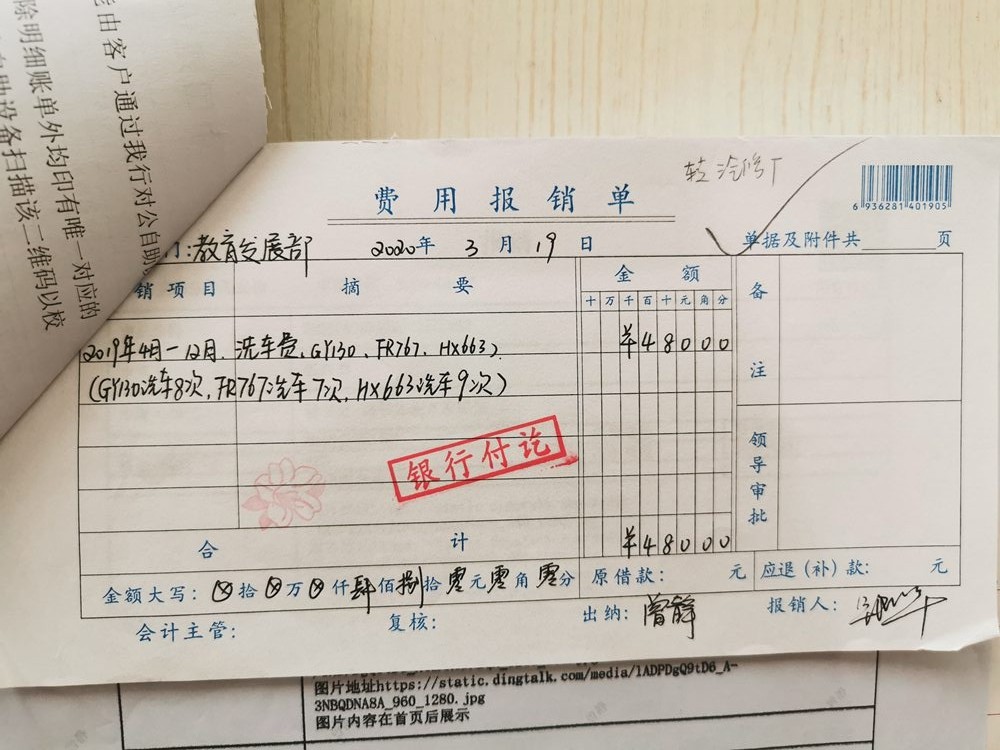 由客户通过我行对公自助
除明细账单外均印有唯一对应的
设备扫描该二维码以校
转汽修厂
费用报销单
6 936281 401905
门:教育发展部 2020年 3月 19日 单据及附件共 页
销项目 摘要 金额 备注
十 万 千 百 十 元 角 分
2019年4月-12月.洗车费.(GY130.FR767.HX663) ¥48000
(GY130洗车8次,FR767洗车7次,HX663洗车9次)
领导审批
银行付讫
合计 ¥48000
金额大写:⊗拾⊗万⊗仟肆佰捌拾零元零角零分 原借款: 元 应退(补)款: 元
会计主管: 复核: 出纳:曾静 报销人:
图片地址https://static.dingtalk.com/media/lADPDgQ9tD6_A-
3NBQDNA8A_960_1280.jpg
图片内容在首页后展示